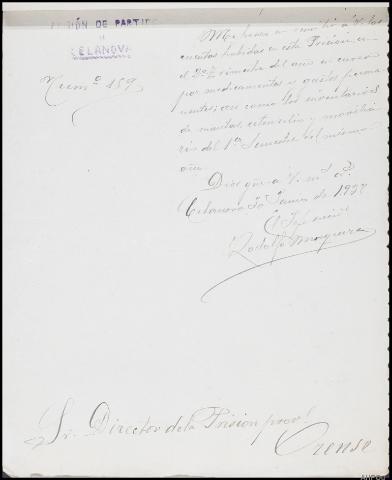 PRISIÓN DE PARTIDO
DE
CELANOVA
Num.º 159
Me honro en remitir a V. las
cuentas habidas en esta Prisión en
el 2º Trimestre del año en curso
por medicamentos y gastos
así como los inventarios
de mantas, utensilio y mobilia
rio del 1er Semestre del mismo
año.
Dios gue a V. ms. as.
Celanova 30 Junio de 1937
El Jefe
Rodolfo Mosquera
Sr. Director de la Prisión provl.
Orense